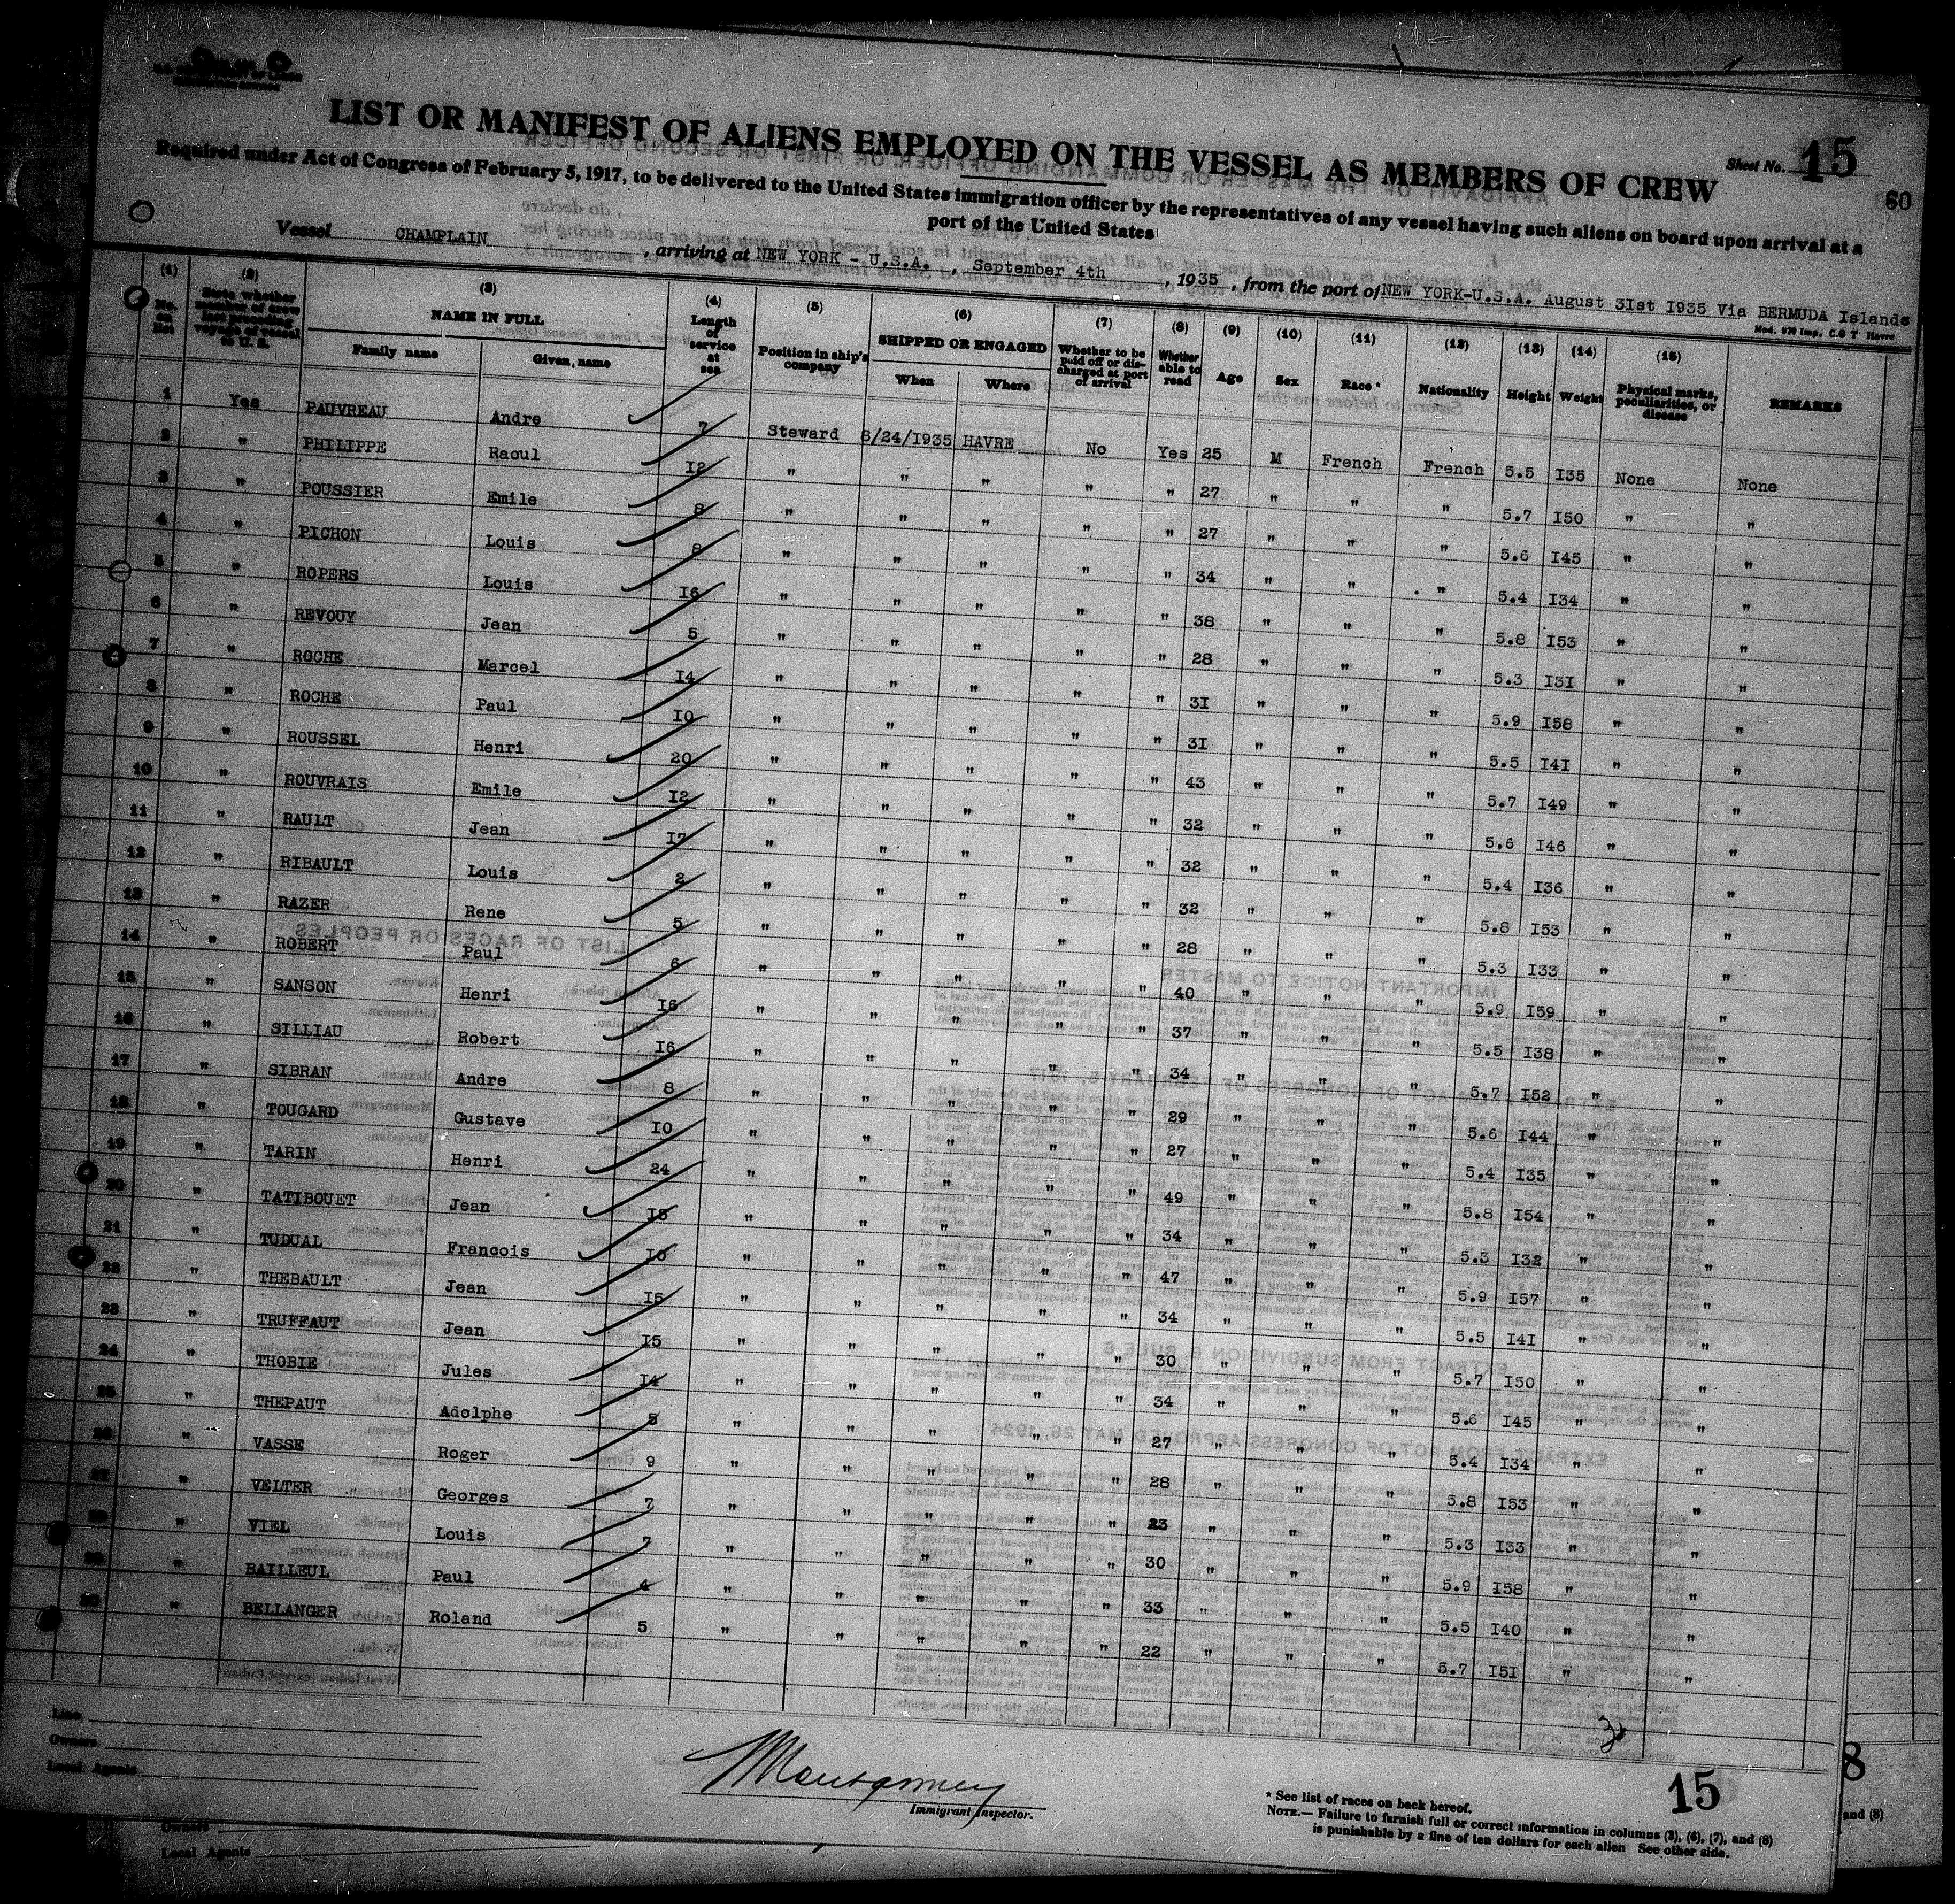 LIST OR MANIFEST OF ALIENS EMPLOYED ON THE VESSEL AS MEMBERS OF CREW
Sheet No. 15
60
Required under Act of Congress of February 5, 1917, to be delivered to the United States immigration officer by the representatives of any vessel having such aliens on board upon arrival at a
port of the United States
Vessel CHAMPLAIN, arriving at NEW YORK - U.S.A., September 4th, 1935, from the port of NEW YORK-U.S.A. August 3Ist I935 Via BERMUDA Islands
Mod. 970 Imp. C.G T Havre
(1) (2) (3) (4) (5) (6) (7) (8) (9) (10) (11) (12) (13) (14) (15)
No. on list
State whether member of crew last preceding voyage of vessel to U. S.
NAME IN FULL
Family name Given name
Length of service at sea
Position in ship's company
SHIPPED OR ENGAGED
When Where
Whether to be paid off or discharged at port of arrival
Whether able to read
Age Sex Race * Nationality Height Weight
Physical marks, peculiarities, or disease
REMARKS
1 Yes PAUVREAU Andre 7 Steward 8/24/I935 HAVRE No Yes 25 M French French 5.5 I35 None None
2 " PHILIPPE Raoul I2 " " " " " 27 " " " 5.7 I50 " "
3 " POUSSIER Emile 8 " " " " " 27 " " " 5.6 I45 " "
4 " PICHON Louis 8 " " " " " 34 " " " 5.4 I34 " "
5 " ROPERS Louis I6 " " " " " 38 " " " 5.8 I53 " "
6 " REVOUY Jean 5 " " " " " 28 " " " 5.3 I3I " "
7 " ROCHE Marcel I4 " " " " " 3I " " " 5.9 I58 " "
8 " ROCHE Paul I0 " " " " " 3I " " " 5.5 I4I " "
9 " ROUSSEL Henri 20 " " " " " 43 " " " 5.7 I49 " "
10 " ROUVRAIS Emile I2 " " " " " 32 " " " 5.6 I46 " "
11 " RAULT Jean I7 " " " " " 32 " " " 5.4 I36 " "
12 " RIBAULT Louis 2 " " " " " 32 " " " 5.8 I53 " "
13 " RAZER Rene 5 " " " " " 28 " " " 5.3 I33 " "
14 " ROBERT Paul 6 " " " " " 40 " " " 5.9 I59 " "
15 " SANSON Henri I6 " " " " " 37 " " " 5.5 I38 " "
16 " SILLIAU Robert I6 " " " " " 34 " " " 5.7 I52 " "
17 " SIBRAN Andre 8 " " " " " 29 " " " 5.6 I44 " "
18 " TOUGARD Gustave I0 " " " " " 27 " " " 5.4 I35 " "
19 " TARIN Henri 24 " " " " " 49 " " " 5.8 I54 " "
20 " TATIBOUET Jean I5 " " " " " 34 " " " 5.3 I32 " "
21 " TUDUAL Francois I0 " " " " " 47 " " " 5.9 I57 " "
22 " THEBAULT Jean I5 " " " " " 34 " " " 5.5 I4I " "
23 " TRUFFAUT Jean I5 " " " " " 30 " " " 5.7 I50 " "
24 " THOBIE Jules I4 " " " " " 34 " " " 5.6 I45 " "
25 " THEPAUT Adolphe 8 " " " " " 27 " " " 5.4 I34 " "
26 " VASSE Roger 9 " " " " " 28 " " " 5.8 I53 " "
27 " VELTER Georges 7 " " " " " 23 " " " 5.3 I33 " "
28 " VIEL Louis 7 " " " " " 30 " " " 5.9 I58 " "
29 " BAILLEUL Paul 4 " " " " " 33 " " " 5.5 I40 " "
30 " BELLANGER Roland 5 " " " " " 22 " " " 5.7 I5I " "
Line
Owners
Local Agents
Montgomery
Immigrant Inspector.
15
* See list of races on back hereof.
NOTE.— Failure to furnish full or correct information in columns (3), (6), (7), and (8)
is punishable by a fine of ten dollars for each alien See other side.
8
and (8)
Owners
Local Agents